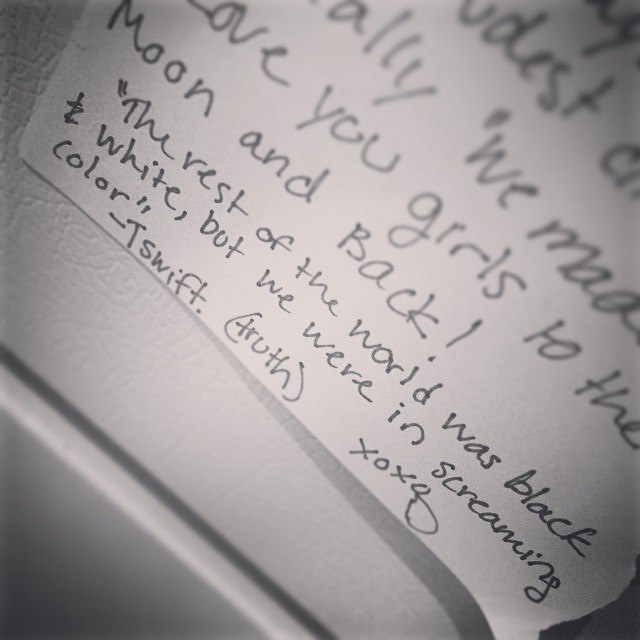 ally "We made
Love you girls to the
Moon and Back!
"The rest of the world was black
& white, but we were in screaming
color"
-Tswift. (truth) xoxo